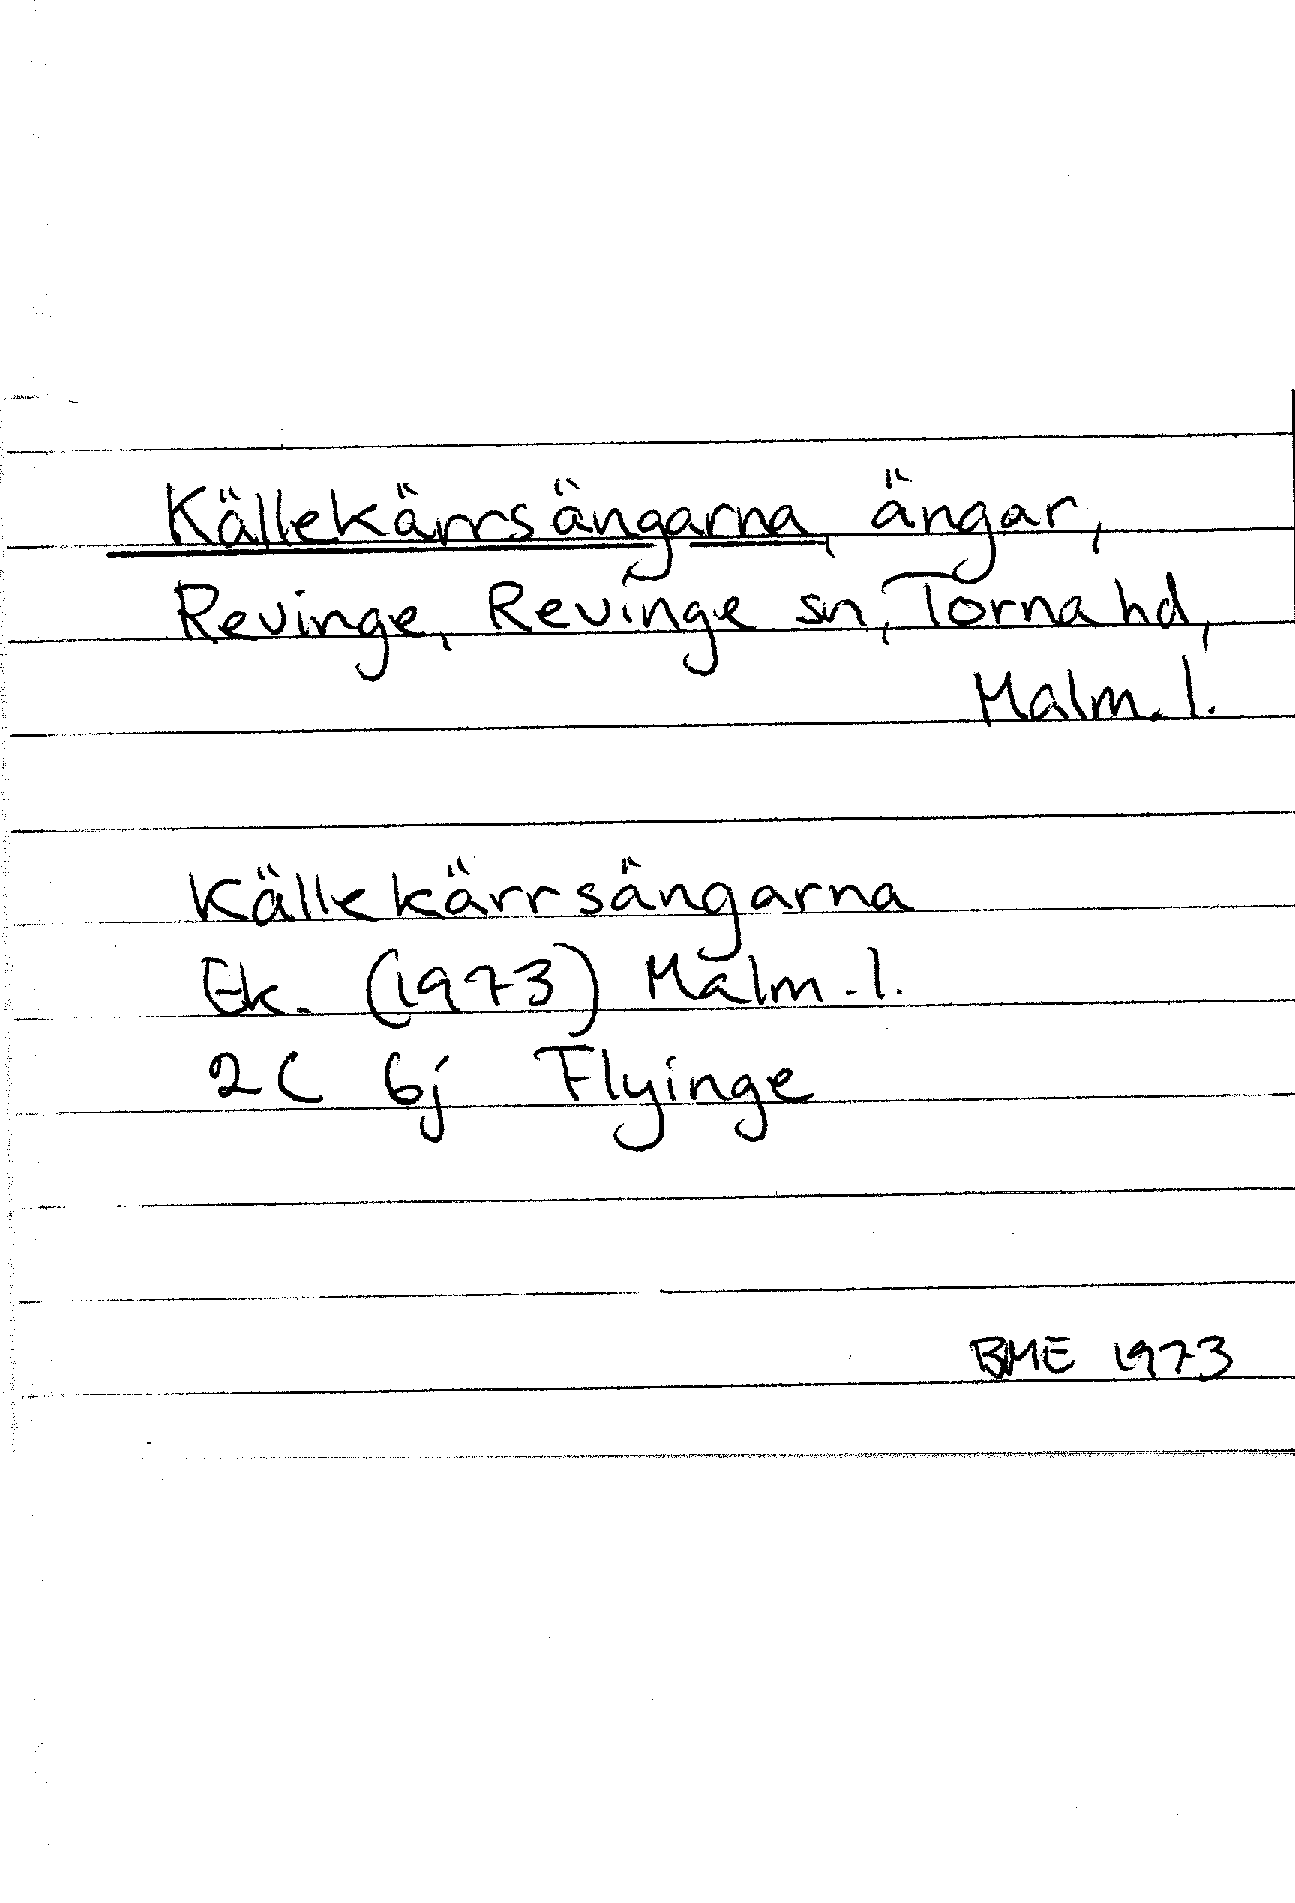 Källekärrsängarna, ängar,
Revinge, Revinge sn, Torna hd,
Malm. l.
Källekärrsängarna
Ek. (1973) Malm. l.
2C 6j Flyinge
BME 1973